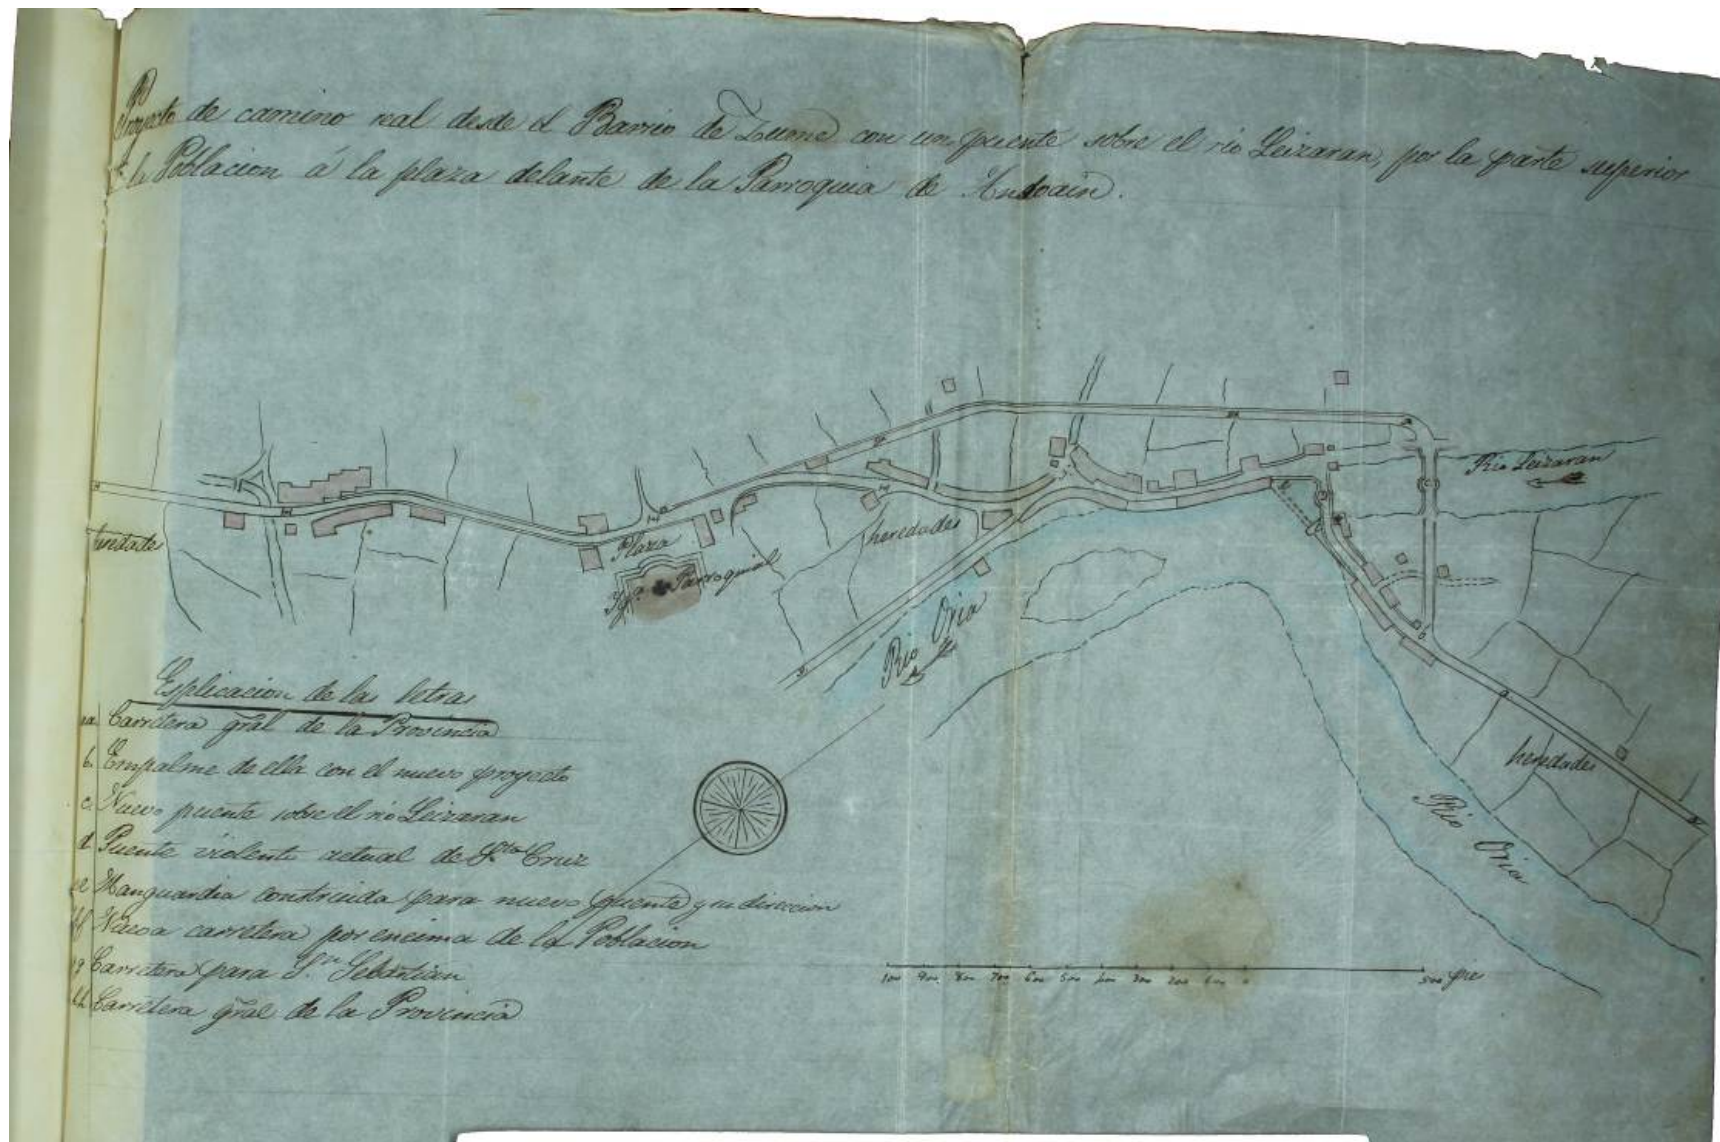 Proyecto de camino real desde el Barrio de con un puente sobre el rio Leizaran, por la parte superior
de la Poblacion á la plaza delante de la Parroquia de Andoain.
Rio Leizaran
heredades
Plaza
heredades
Ygª. Parroquial
Rio Oria
heredades
Rio Oria
Esplicacion de las letras
aa Carretera gral de la Provincia
b. Empalme de ella con el nuevo proyecto
c. Nuevo puente sobre el rio Leizaran
d Puente violento actual de Sta Cruz
ee Manguardia construida para nuevo puente y su direccion
ff Nueva carretera por encima de la Poblacion
gg Carretera para Sn Sebastian
hh Carretera gral de la Provincia
100 900 800 700 600 500 400 300 200 100 0 500 pies